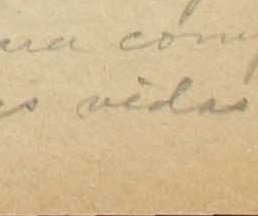 ara com
es vidas